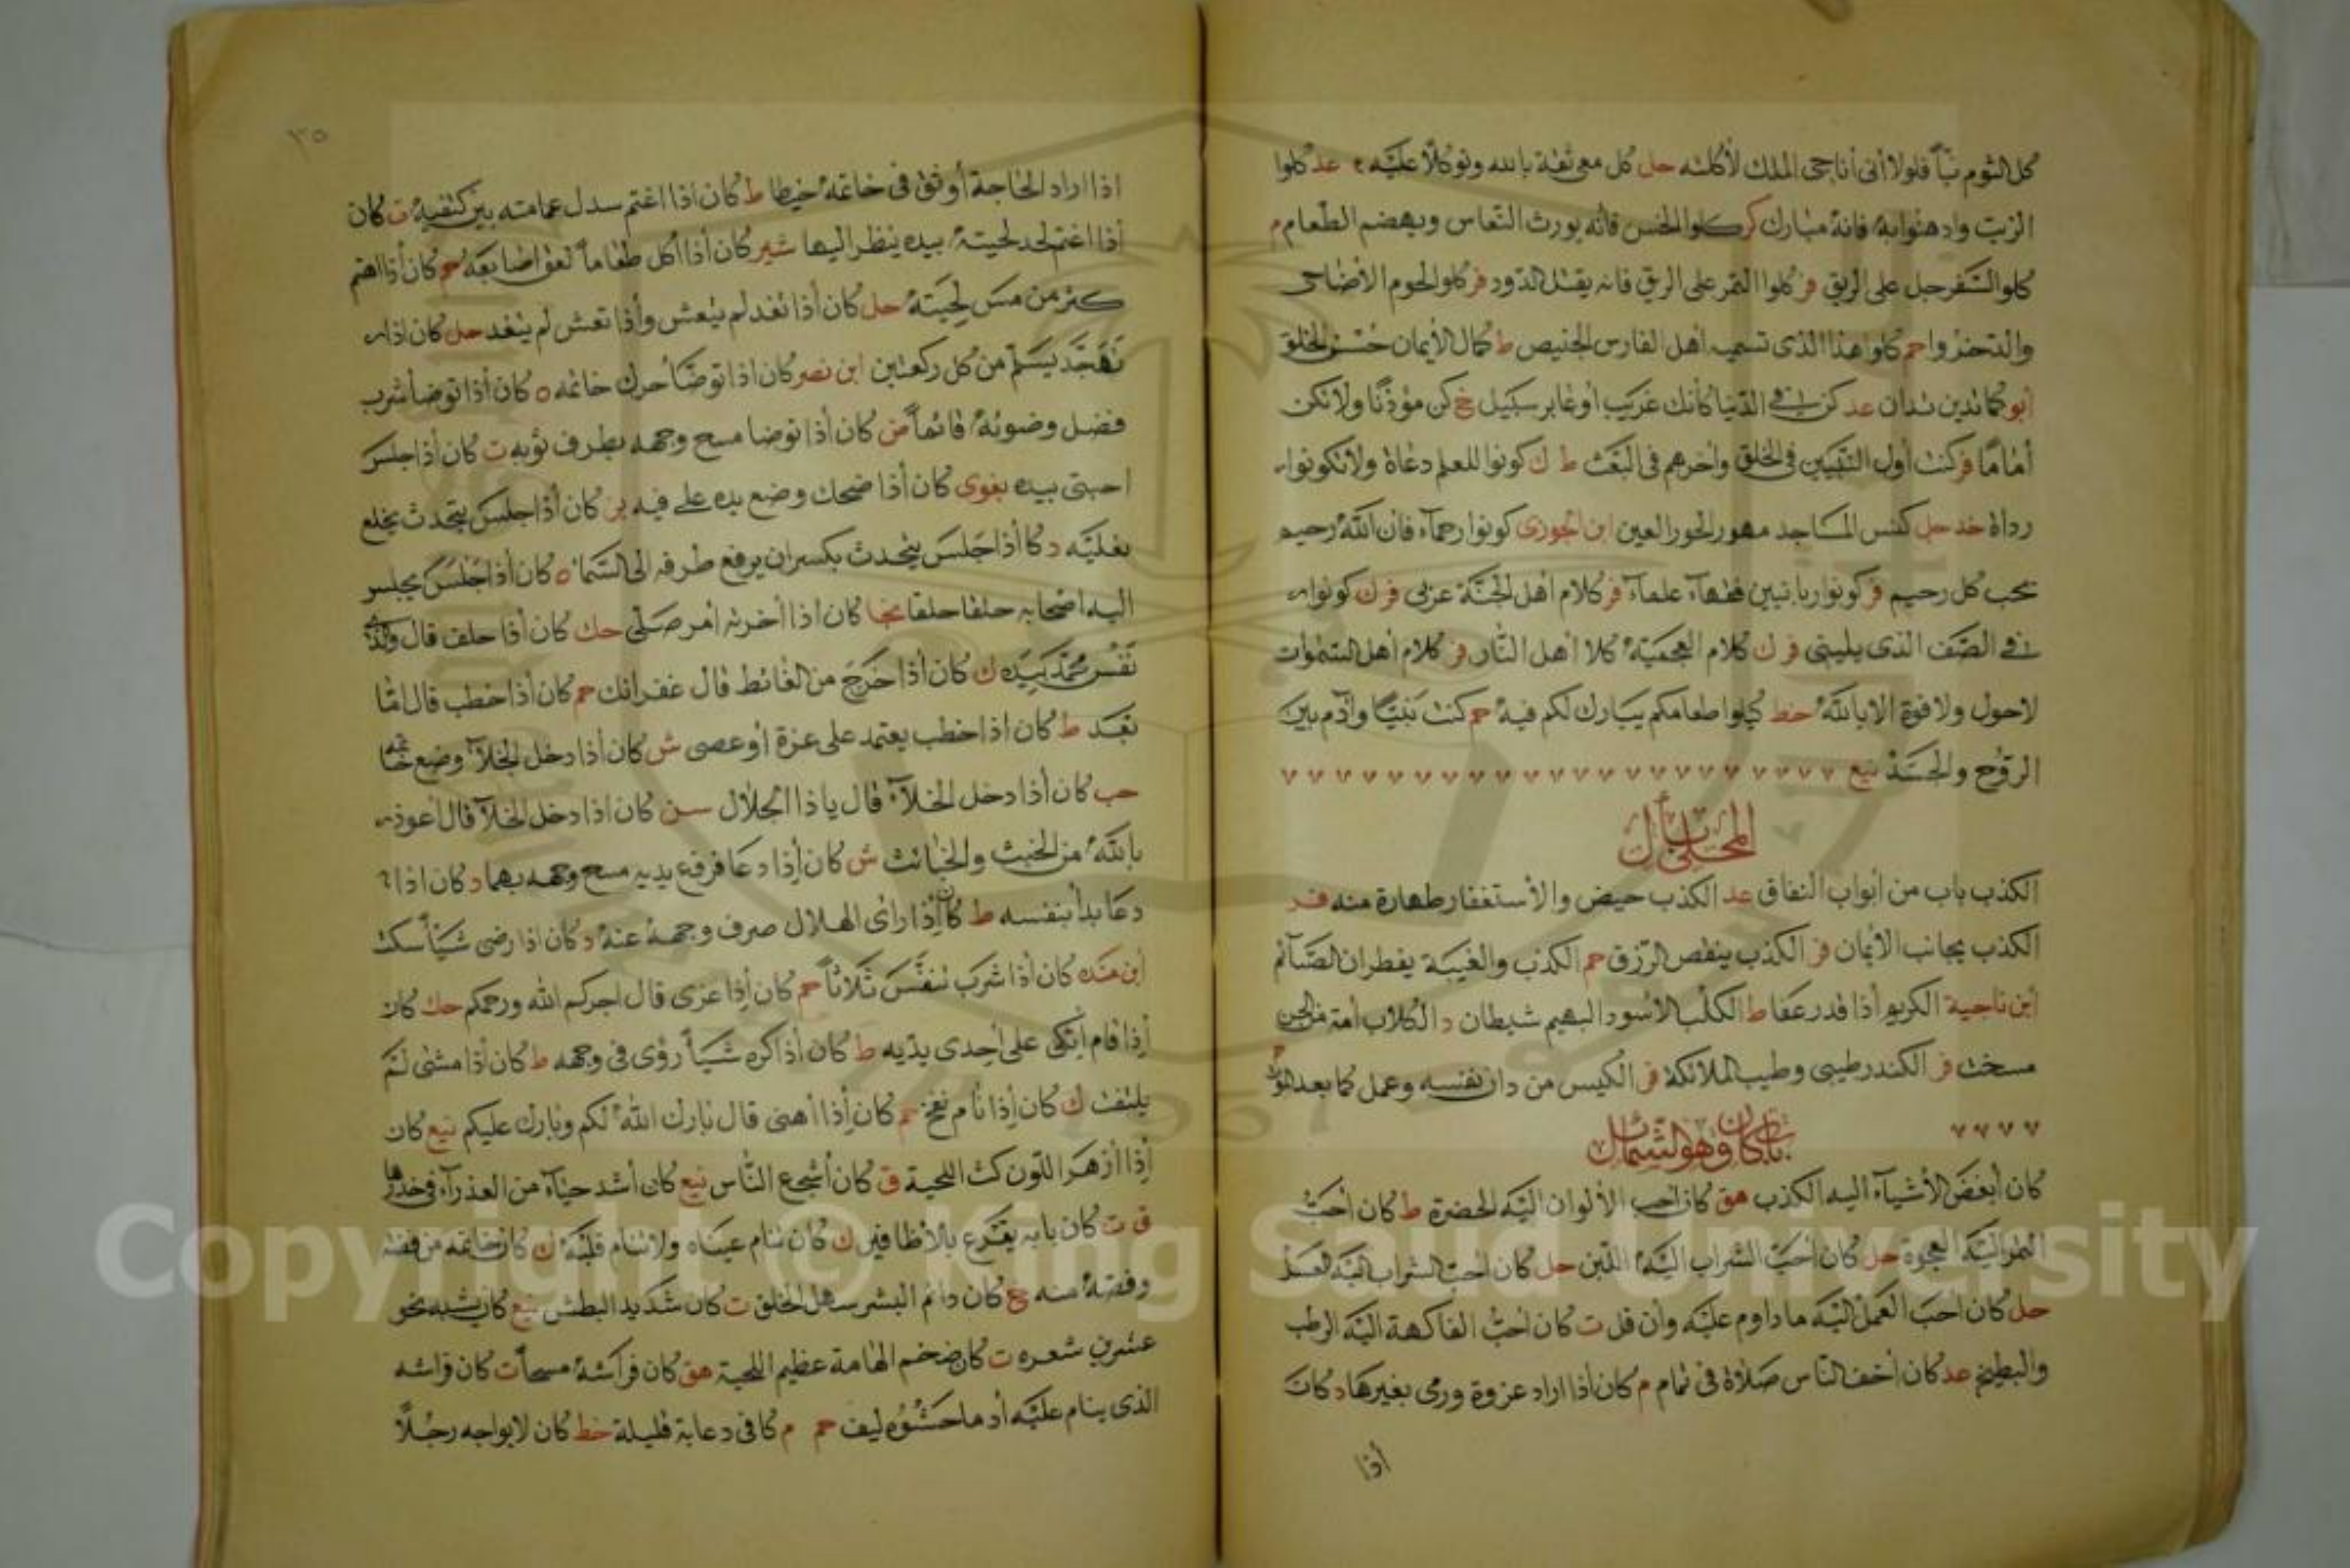 كل الثوم نيأ فلولا أنى أناجى الملك لأكلته حل كل معى ثقة بالله وتوكلا عليه عد كلوا
الزيت وادهنوا به فانه مبارك كر كلوا الخس فانه يورث النعاس ويهضم الطعام م
كلوا السفرجل على الريق فر كلوا التمر على الريق فانه يقتل الدود فر كلوا لحوم الأضاحى
وادخروا حم كلوا هذا الذى تسميه اهل الفارس الخبيص ط كمال الأيمان حسن الخلق
أبو كما تدين تدان عد كن فى الدنيا كأنك غريب أو عابر سبيل خ كن مؤذنا ولا تكن
أماما فر كنت أول النبيين فى الخلق وأخرهم فى البعث ط ك كونوا للعلم دعاة ولا تكونوا
رداة خد حل كنس المساجد مهور الحور العين ابن الجوزى كونوا رحماء فان الله رحيم
يحب كل رحيم فر كونوا ربانيين فقهآء علمآء فر كلام أهل الجنة عربى فر ك كونوا
فى الصف الذى يلينى فر ك كلام العجمية كلا أهل النار فر كلام أهل السموات
لاحول ولا قوة الا بالله خط كيلوا طعامكم يبارك لكم فيه حم كنت نبيا وآدم بين
الروح والجسد نيع
المحلى بأل
الكذب باب من أبواب النفاق عد الكذب حيض والأستغفار طهارة منه فر
الكذب يجانب الأيمان فر الكذب ينقص الرزق حم الكذب والغيبة يفطران الصآئم
ابن ناجية الكريم أذا قدر عفا ط الكلب الأسود البهيم شيطان د الكلاب أمة من الجن
مسخت فر الكندر طيبى وطيب الملائكة فر الكيس من دان نفسه وعمل لما بعد الموت
باب كان وهو الشمائل
كان أبغض الأشيآء اليه الكذب هق كان أحب الألوان اليه الخضرة ط كان أحب
التمر اليه العجوة حل كان أحب الشراب اليه اللبن حل كان أحب الشراب اليه العسل
حل كان أحب العمل اليه ما داوم عليه وأن قل ت كان أحب الفاكهة اليه الرطب
والبطيخ عد كان أخف الناس صلاة فى تمام م كان أذا اراد غزوة ورى بغيرها د كان
أذا
٣٥
اذا اراد الحاجة أوثق فى خاتمه خيطا ط كان اذا اعتم سدل عمامته بين كتفيه ت كان
أذا اغتم أخذ لحيته بيده ينظر اليها شير كان أذا أكل طعاماً لعق أصابعه حم كان أذا اهتم
كثر من مس لحيته حل كان أذا تغد لم يتعش وأذا تعش لم يتغد حل كان اذا
تهجد يسلم من كل ركعتين ابن نصر كان اذا توضأ حرك خاتمه ه كان أذا توضأ شرب
فضل وضوئه قائماً ض كان أذا توضا مسح وجهه بطرف ثوبه ت كان أذا جلس
احتبى بيده بغوى كان أذا ضحك وضع يده على فيه بز كان أذا جلس يتحدث يخلع
نعليه د كا أذا جلس يتحدث يكسر ان يرفع طرفه الى السماء ه كان أذا جلس يجلس
اليه اصحابه حلقا حلقا كان اذا أخرته أمر صلى حك كان أذا حلف قال والذى
نفس محمد بيده ك كان أذا خرج من الغائط قال غفرانك حم كان أذا خطب قال اما
بعد ط كان اذا خطب يعتمد على عزة أو عصى ش كان أذا دخل الخلآ وضع خاتمه
حب كان أذا دخل الخلآء قال ياذا الجلال سن كان اذا دخل الخلآ قال اعوذ
بالله من الخبث والخبائث ش كان أذا دعا فرفع يديه مسح وجهه بهما د كان اذا
دعا بدأ بنفسه ط كان أذا رأى الهلال صرف وجهه عنه د كان اذا رضى شيأ سكت
أبن منده كان أذا شرب تنفس ثلاثاً حم كان أذا عزى قال اجركم الله ورحمكم حك كان
أذا قام اتكى على أحدى يديه ط كان أذا كره شيأ رؤى فى وجهه ط كان أذا مشى لم
يلتفت ك كان أذا نام نفخ حم كان أذا أهنى قال بارك الله لكم وبارك عليكم نيع كان
أذا أزهر اللون كث اللحية ق كان أشجع الناس نيع كان أشد حيآء من العذرآء فى خدرها
ق ت كان بابه يقرع بالأظافير ك كان تنام عيناه ولا ينام قلبه ك كان خاتمه من فضة
وفصه منه ع كان دائم البشر سهل الخلق ت كان شديد البطش نيع كان شيبه نحو
عشرين شعره ت كان ضخم الهامة عظيم اللحية هق كان فراشه مسحاً ت كان فراشه
الذى ينام عليه أدما حشوه ليف حم م كا فى دعابة قليلة خط كان لايواجه رجلاً